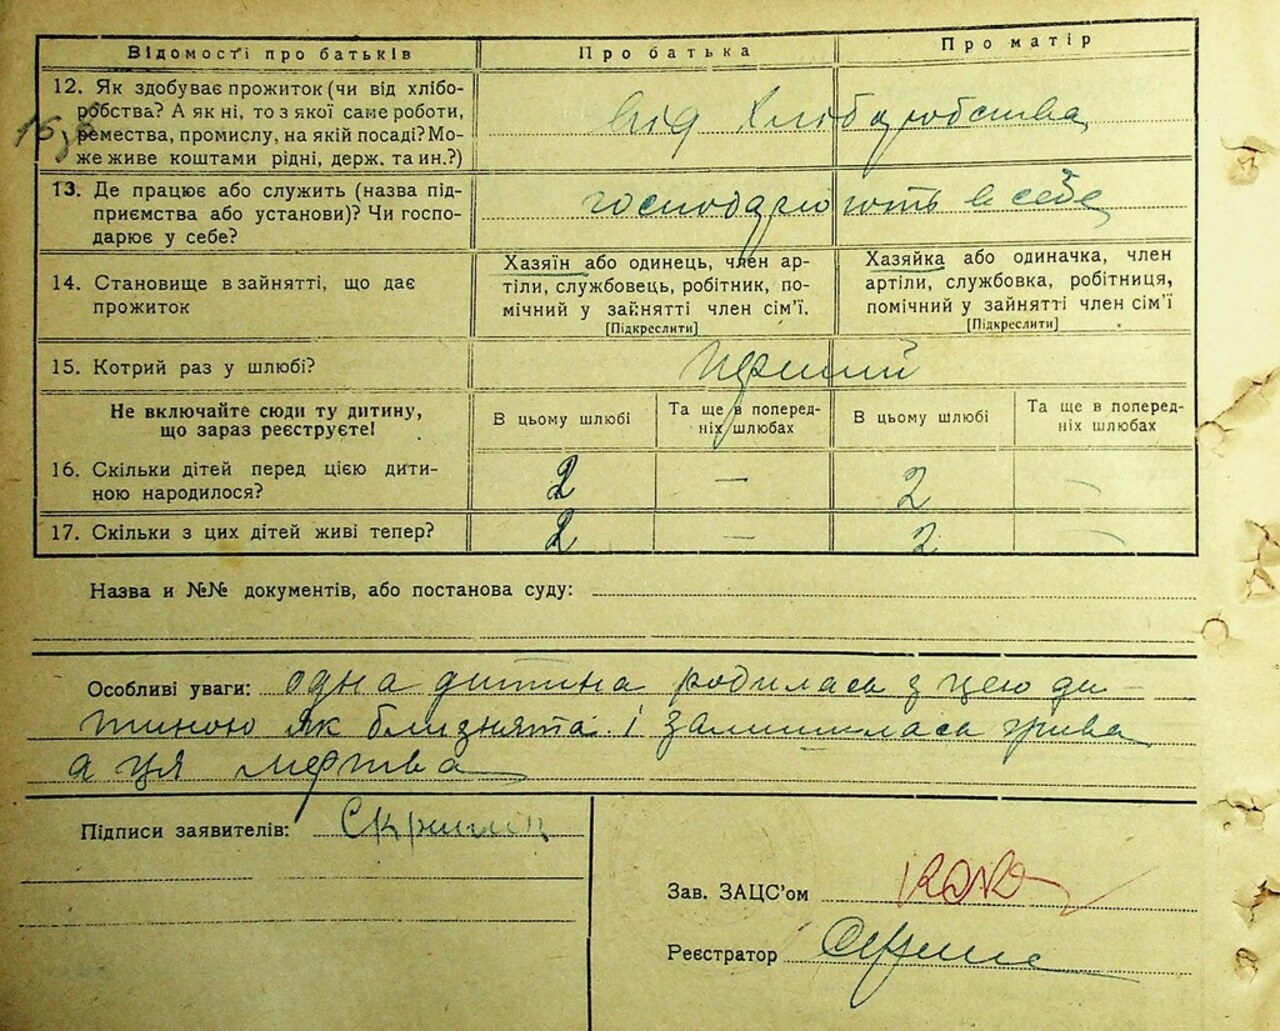 Відомості про батьків
Про батька
Про матір
12. Як здобуває прожиток (чи від хлібо-
робства? А як ні, то з якої саме роботи,
ремества, промислу, на якій посаді? Мо-
же живе коштами рідні, держ. та ин.?)
від хліборобства
13. Де працює або служить (назва під-
приємства або установи)? Чи госпо-
дарює у себе?
господарюють в себе
14. Становище в зайнятті, що дає
прожиток
Хазяїн або одинець, член ар-
тіли, службовець, робітник, по-
мічний у зайнятті член сім’ї.
[Підкреслити]
Хазяйка або одиначка, член
артіли, службовка, робітниця,
помічний у зайнятті член сім’ї
[Підкреслити]
15. Котрий раз у шлюбі?
перший
Не включайте сюди ту дитину,
що зараз реєструєте!
В цьому шлюбі
Та ще в поперед-
ніх шлюбах
В цьому шлюбі
Та ще в поперед-
ніх шлюбах
16. Скільки дітей перед цією дити-
ною народилося?
2 — 2 —
17. Скільки з цих дітей живі тепер?
2 — 2 —
Назва и №№ документів, або постанова суду:
Особливі уваги: одна дитина родилась з цею ди-
тиною як близнята і залишилась жива
а ця мертва
Підписи заявителів:
Зав. ЗАЦС’ом
Реєстратор